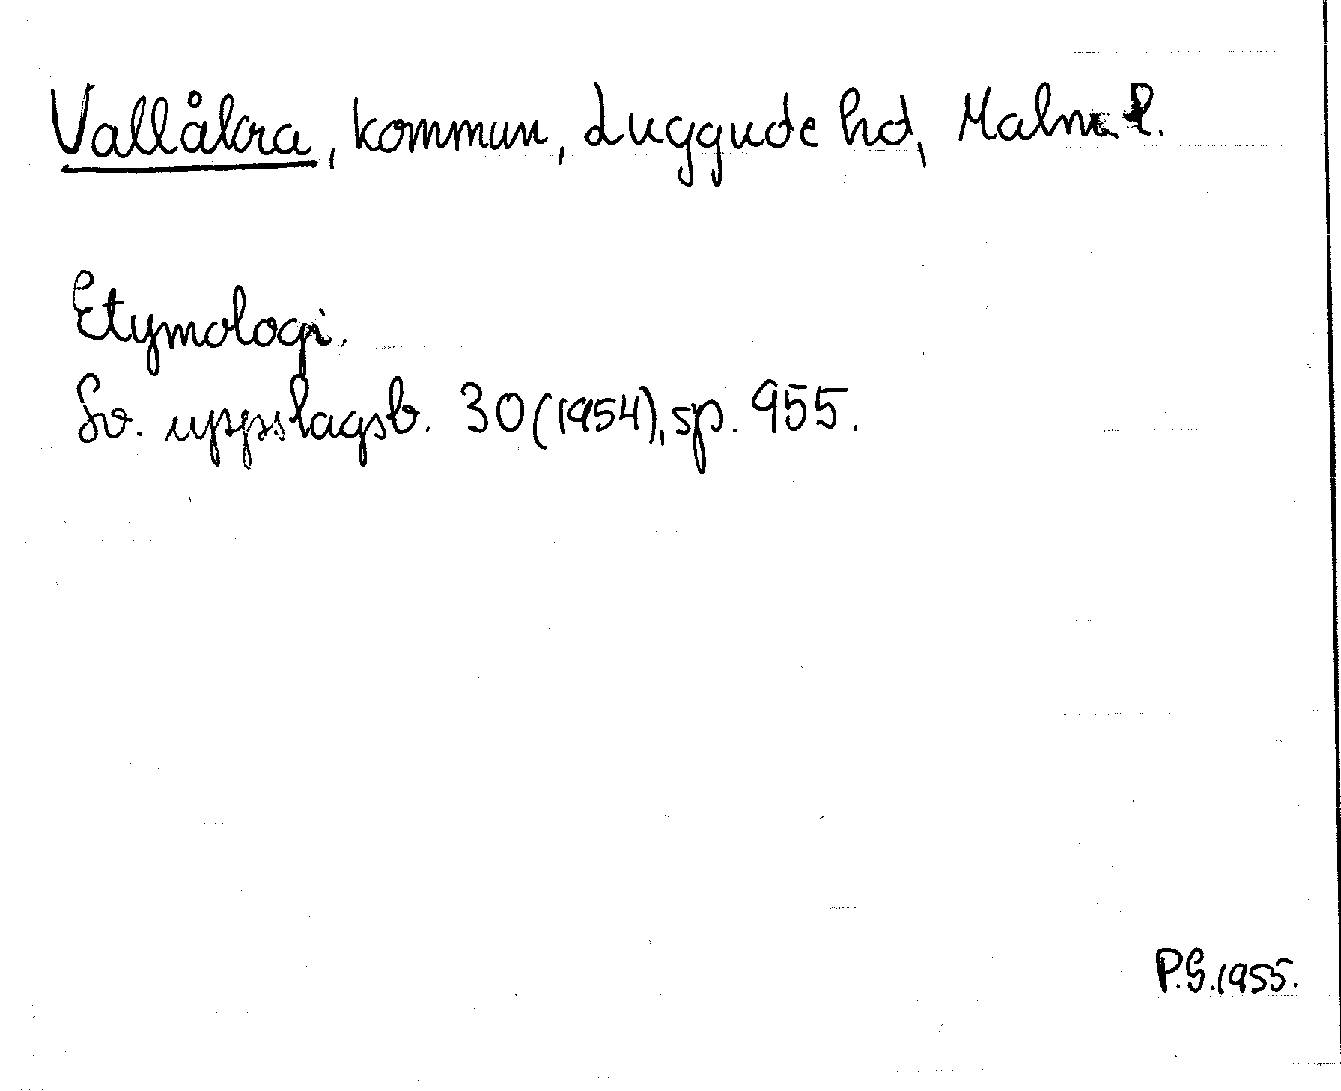 Vallåkra, kommun, Luggude hd, Malm. l.
Etymologi.
Sv. uppslagsb. 30 (1954), sp. 955.
P.G. 1955.